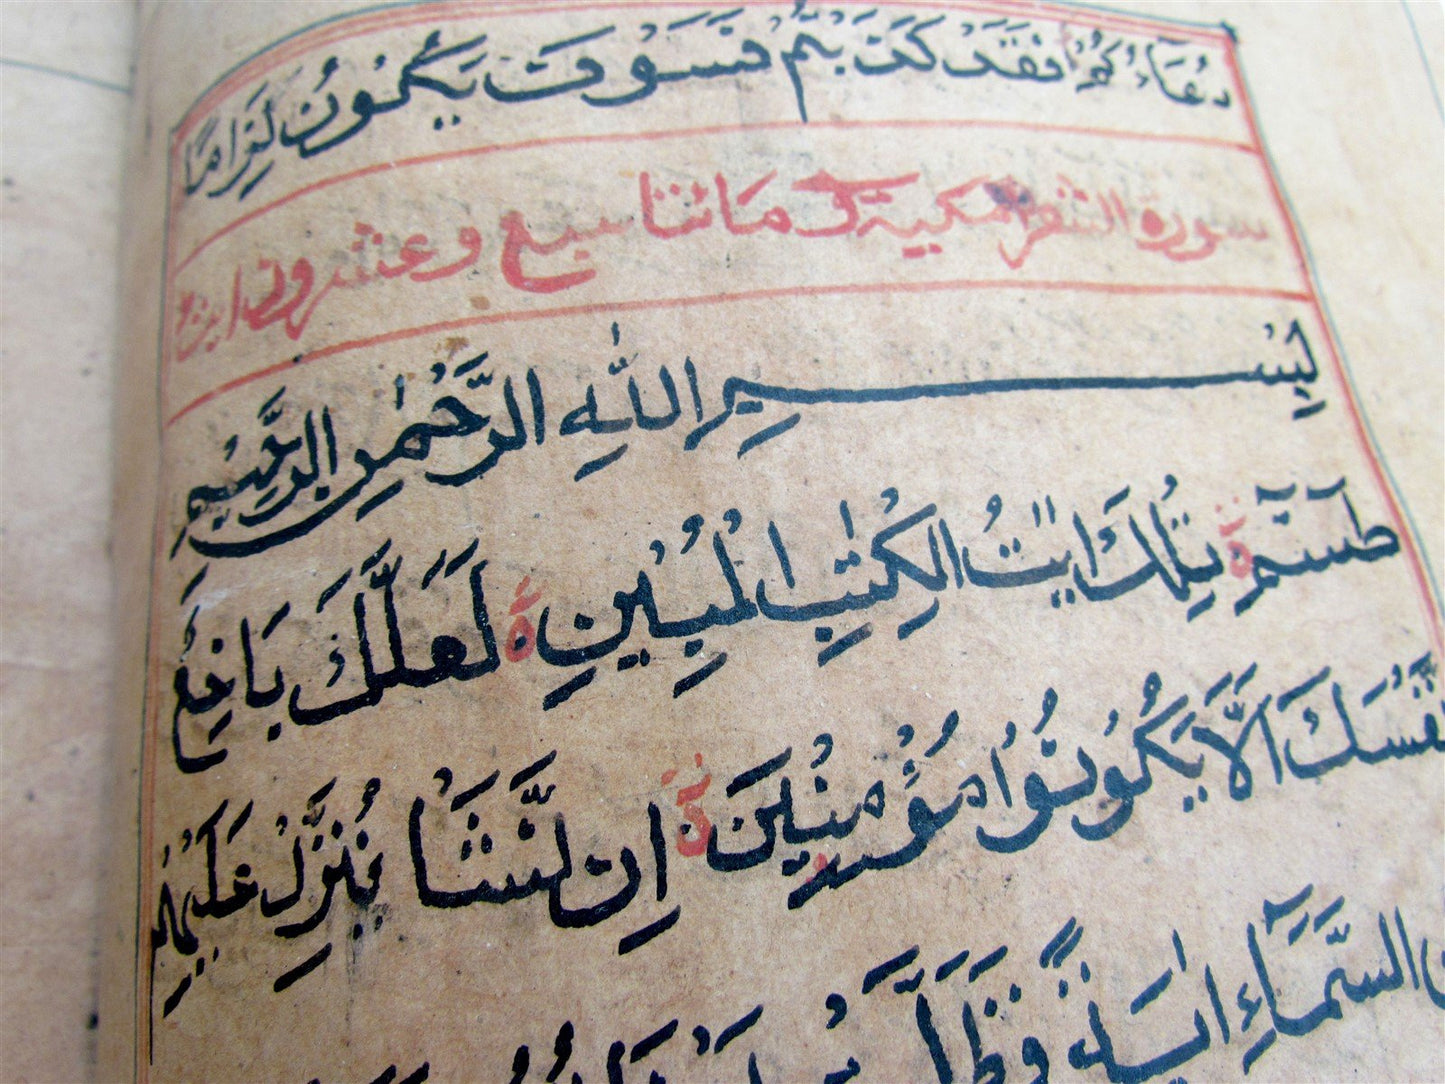 دُعَاءُكُمْ فَقَدْ كَذَّبْتُمْ فَسَوْفَ يَكُوْنُ لِزَامًا
سورة الشعرا مكية مائتا سبع وعشرون اية
بِسْمِ اللهِ الرَّحْمٰنِ الرَّحِيْمِ
طسٓمّٓ ۝ تِلْكَ اٰيٰتُ الْكِتٰبِ الْمُبِيْنِ ۝ لَعَلَّكَ بَاخِعٌ
نَّفْسَكَ اَلَّا يَكُوْنُوْا مُؤْمِنِيْنَ ۝ اِنْ نَّشَأْ نُنَزِّلْ عَلَيْهِمْ
السَّمَآءِ اٰيَةً فَظَلَّتْ